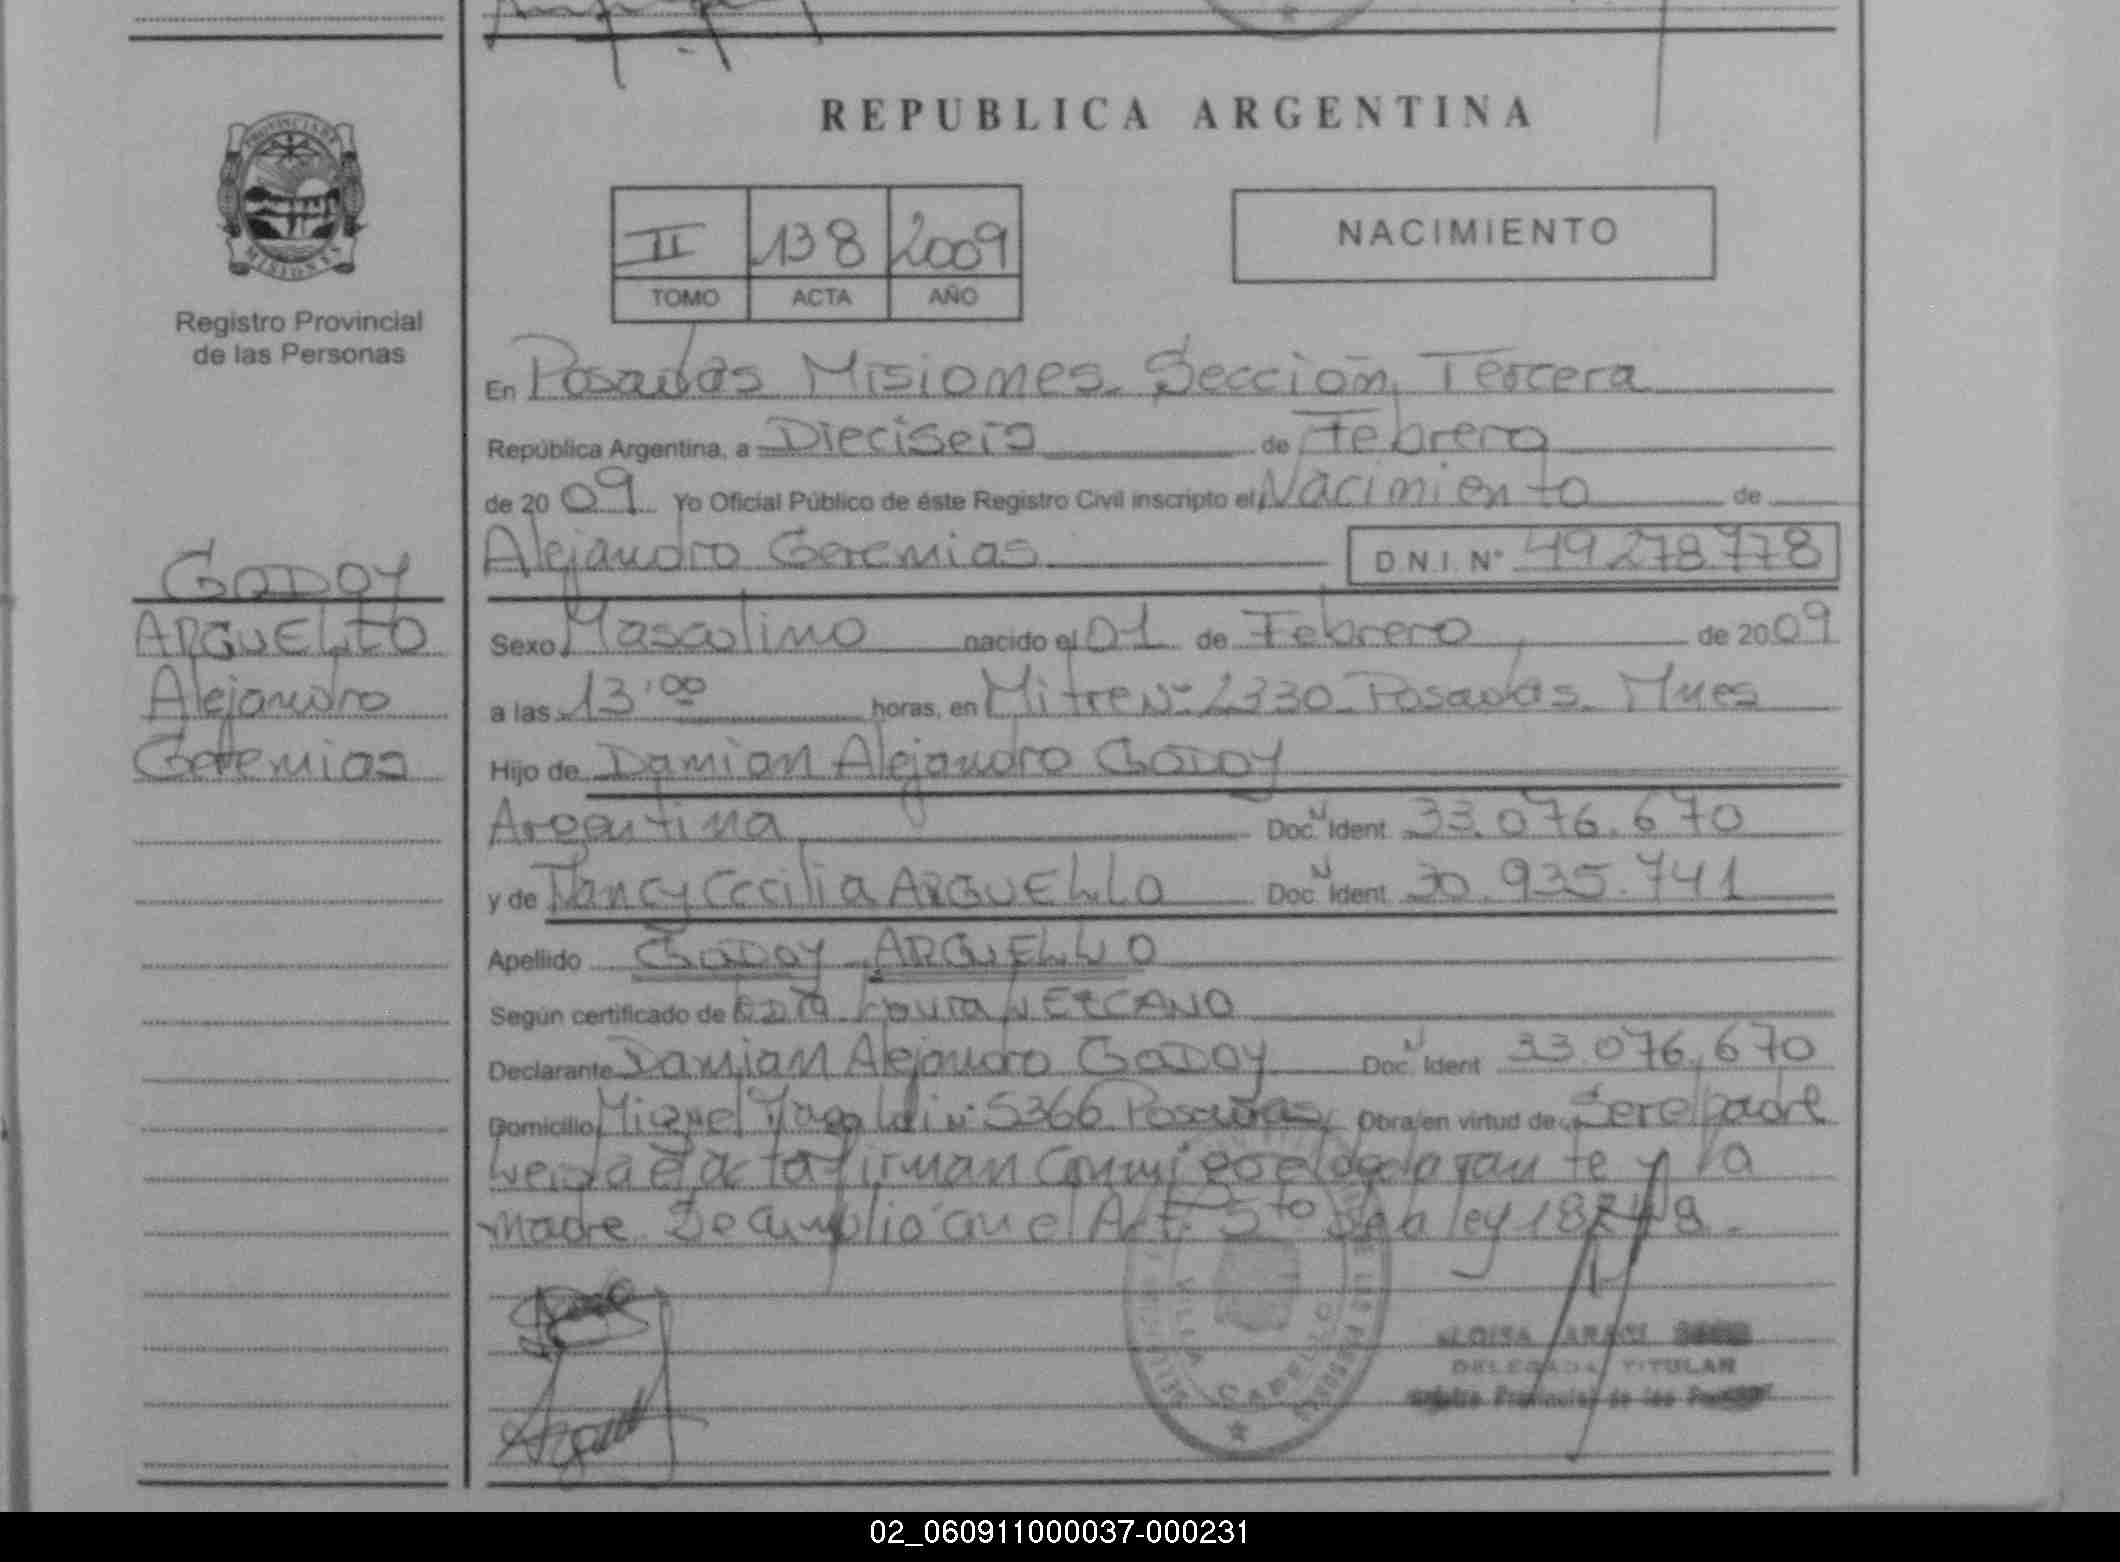 REPUBLICA ARGENTINA
PROVINCIA DE
MISIONES
Registro Provincial
de las Personas
II 138 2009
TOMO ACTA AÑO
NACIMIENTO
En Posadas Misiones Sección Tercera
República Argentina, a Dieciseis de Febrero
de 2009 Yo Oficial Público de éste Registro Civil inscripto el Nacimiento de
Alejandro Geremias D.N.I. Nº 49.278.778
GODOY
ARGUELLO
Alejandro
Geremias
Sexo Masculino nacido el 01 de Febrero de 2009
a las 13:00 horas, en Mitre Nº 2330 Posadas Mnes
Hijo de Damian Alejandro GODOY
Argentina Doc. N Ident 33.076.670
y de Nancy Cecilia ARGUELLO Doc. N Ident 30.935.741
Apellido GODOY ARGUELLO
Según certificado de LEZCANO
Declarante Damian Alejandro GODOY Doc. N Ident 33.076.670
Domicilio Miguel Nº 5366 Posadas Obra en virtud de Ser el padre
Leida el acta firman Conmigo el declarante y la
madre. Se cumplió con el Art. 5to de la ley 18248.
VILLA CABELLO
DELEGADA TITULAR
Registro Provincial de las Personas
02_060911000037-000231